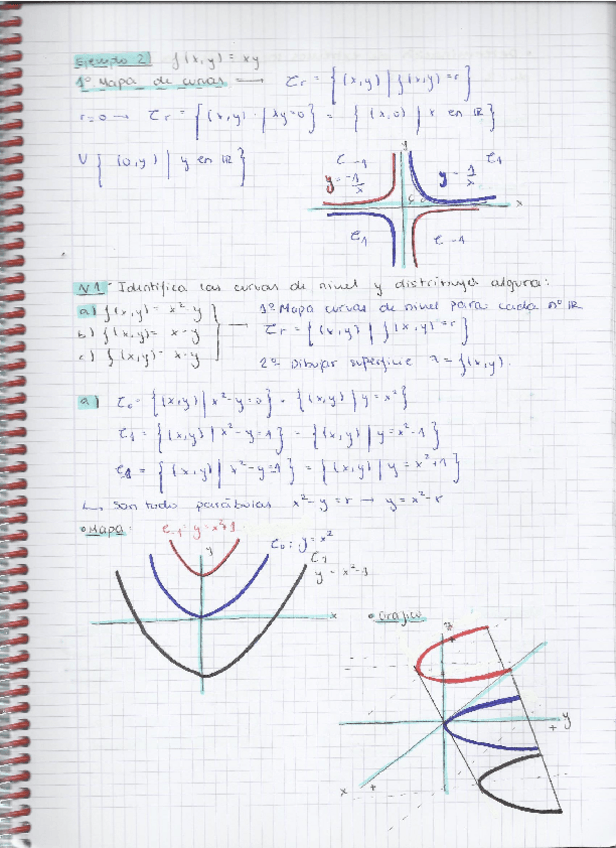 Ejemplo 2 f(x,y) = xy
1º Mapa de curvas → τr = {(x,y) | f(x,y)=r}
r=0 → τr = {(x,y) | xy=0} = {(x,0) | x en IR}
V {(0,y) | y en IR}
y
τ-1
τ1
y = -1/x
y = 1/x
x
τ1
τ-1
Nº1 - Identifica las curvas de nivel y distribuya alguna:
a) f(x,y) = x² - y
b) f(x,y) = x - y
c) f(x,y) = x - y
→ 1º Mapa curvas de nivel para cada nº IR
τr = {(x,y) | f(x,y)=r}
2º Dibujar superficie z = f(x,y).
a) τ0 = {(x,y) | x²-y=0} = {(x,y) | y=x²}
τ1 = {(x,y) | x²-y=1} = {(x,y) | y=x²-1}
τ1 = {(x,y) | x²-y=1} = {(x,y) | y=x²+1}
↳ Son todo parábolas x²-y=r → y=x²-r
• Mapa:
τ-1: y=x²+1
τ0: y=x²
τ1
y=x²-1
y
x
• Gráfico
z
+
y
+
x
+